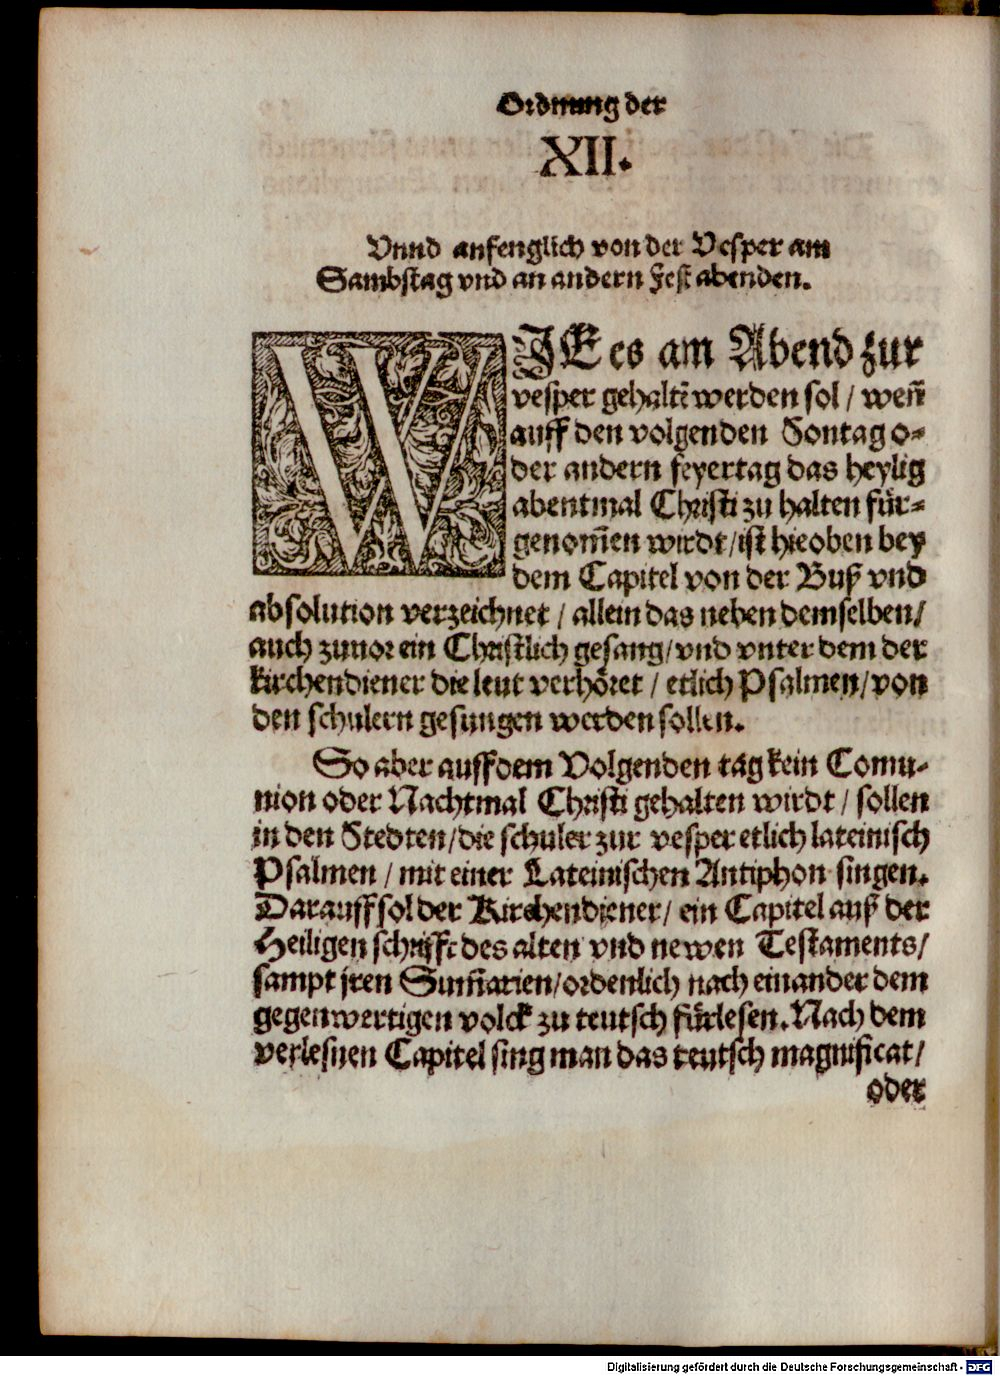 Ordnung der
XII.
Vnnd anfenglich von der Vesper am
Sambstag vnd an andern Fest abenden.
WJE es am Abend zur
vesper gehaltē werden sol / weñ
auff den volgenden Sontag o-
der andern feyertag das heylig
abentmal Christi zu halten für-
genom̃en wirdt / ist hieoben bey
dem Capitel von der Buß vnd
absolution verzeichnet / allein das neben demselben /
auch zuuor ein Christlich gesang / vnd vnter dem der
kirchendiener die leut verhöret / etlich Psalmen / von
den schulern gesungen werden sollen.
So aber auff dem Volgenden tag kein Comu-
nion oder Nachtmal Christi gehalten wirdt / sollen
in den Stedten / die schuler zur vesper etlich lateinisch
Psalmen / mit einer Lateinischen Antiphon singen.
Darauff sol der Kirchendiener / ein Capitel auß der
Heiligen schrifft des alten vnd newen Testaments /
sampt jren Sum̃arien / ordenlich nach einander dem
gegenwertigen volck zu teutsch fürlesen. Nach dem
verlesnen Capitel sing man das teutsch magnificat /
oder
Digitalisierung gefördert durch die Deutsche Forschungsgemeinschaft - DFG